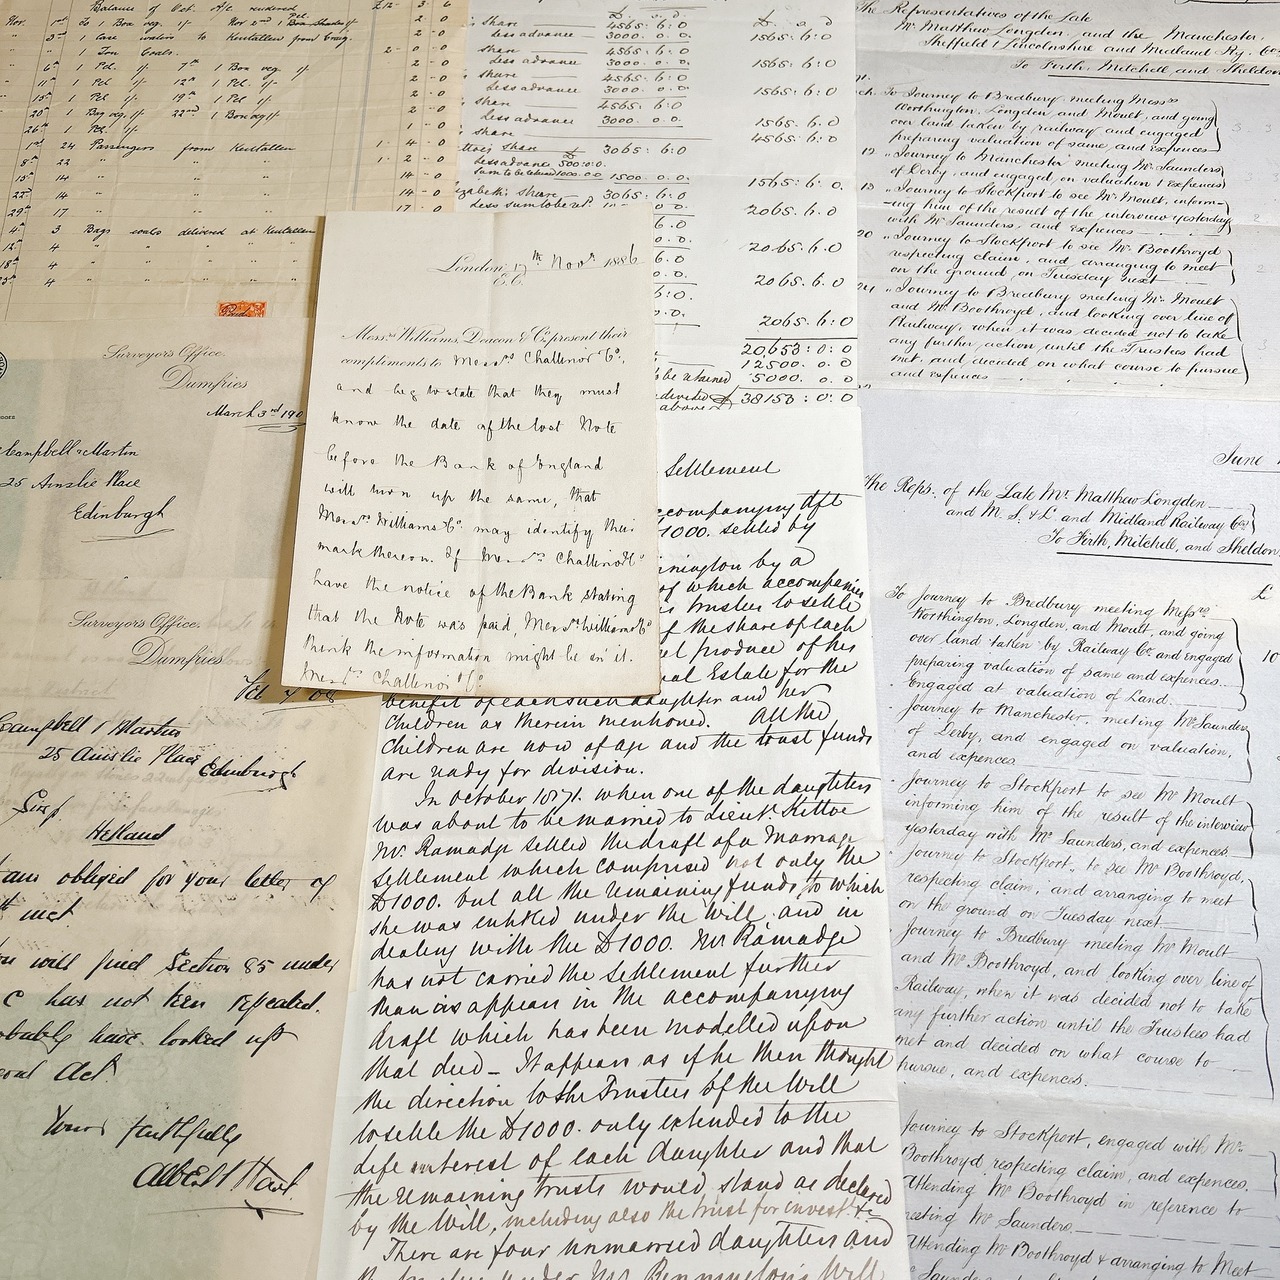 Balance of Oct. A/c rendered
Nov. 1st 1 Box veg. 1/-
1 Case water to Kentallen from Craig.
1 Ton Coals.
6th 1 Pcl. 1/- 7th 1 Box veg 1/-
11th 1 Pcl 1/- 12th 1 Pcl 1/-
15th 1 Pcl 1/- 19th 1 Pcl 1/-
20th 1 Bag veg. 1/- 22nd 1 Box veg 1/-
26th 1 Pcl. 1/-
1st 24 Passengers from Kentallen
8th 22 " " "
15th 14 " " "
22nd 14 " " "
29th 17 " " "
4th 3 Bags coals delivered at Kentallen
12th 4 " " " "
18th 4 " " " "
4 " " " "
Surveyors Office,
Dumfries
March 3rd 190
Campbell & Martin
25 Ainslie Place
Edinburgh
Surveyors Office.
Dumfries
Campbell & Martin
25 Ainslie Place Edinburgh
Sirs
Helland
am obliged for your letter of
inst.
will find Section 85 under
C has not been repealed.
probably have looked up
Act.
Yours faithfully
Albert Hart
share 4565: 6: 0
Less advance 3000. 0. 0. 1565: 6: 0
share 4565: 6: 0
Less advance 3000. 0. 0. 1565: 6: 0
share 4565: 6: 0
Less advance 3000. 0. 0. 1565: 6: 0
share 4565: 6: 0
Less advance 3000. 0. 0. 1565: 6: 0
share 4565: 6: 0
share £ 3065: 6: 0
Less advance 500: 0: 0.
Sum to be retained 1000. 0. 0 1500. 0. 0. 1565: 6: 0.
share 3065: 6: 0
Less sum to be ret. 2065. 6. 0
2065. 6. 0
2065. 6. 0
2065. 6: 0
20,653: 0: 0
12500. 0. 0
to be retained 5000. 0. 0
divided £ 38153: 0: 0
above
London 17th Novr. 1886
E.C.
Messrs. Williams, Deacon & Co. present their
compliments to Messrs Challinor & Co.
and beg to state that they must
know the date of the lost Note
before the Bank of England
will turn up the same, that
Messrs Williams & Co may identify their
mark thereon. If Messrs Challinor & Co
have the notice of the Bank stating
that the Note was paid, Messrs Williams & Co
think the information might be in it.
Messrs Challinor & Co.
Settlement
accompanying dft
1000. settled by
Pennington by a
of which accompanies
Trustees to settle
of the share of each
produce of his
Estate for the
benefit of each such daughter and her
children as therein mentioned. All the
children are now of age and the trust funds
are ready for division.
In October 1871. when one of the daughters
was about to be married to Lieut. Kittoe
Mr. Ramadge settled the draft of a Marriage
Settlement which comprised not only the
£1000. but all the remaining funds to which
she was entitled under the Will. and in
dealing with the £1000. Mr Ramadge
has not carried the settlement further
than is appears in the accompanying
draft which has been modelled upon
that deed – It appears as if he then thought
the direction to the Trustees of the Will
to settle the £1000. only extended to the
life interest of each daughter and that
the remaining trusts would stand as declared
by the Will, including also the trust for invest. &c
There are four unmarried daughters and
The Representatives of the Late
Mr. Matthew Longden, and the Manchester,
Sheffield & Lincolnshire and Midland Ry. Co
To Firth, Mitchell, and Sheldon
To Journey to Bredbury meeting Messrs
Worthington, Longden and Moult, and going
over land taken by railway and engaged
preparing valuation of same, and expences
12 " Journey to Manchester meeting Mr. Saunders
of Derby, and engaged on valuation & expences
13 " Journey to Stockport to see Mr. Moult, inform-
-ing him of the result of the interview yesterday
with Mr. Saunders, and expences
20 " Journey to Stockport to see Mr. Boothroyd
respecting claim, and arranging to meet
on the ground, on Tuesday next
" Journey to Bredbury meeting Mr. Moult
and Mr. Boothroyd, and looking over line of
Railway, when it was decided not to take
any further action until the Trustees had
met, and decided on what course to pursue
and expences
June
The Reps. of the Late Mr. Matthew Longden
and M. S. & L. and Midland Railway Cos
To Firth, Mitchell, and Sheldon
£
To Journey to Bredbury meeting Messrs
Worthington, Longden, and Moult, and going
over land taken by Railway Co. and engaged
preparing valuation of same and expences
Engaged at valuation of Land. 10
Journey to Manchester, meeting Mr Saunders
of Derby, and engaged on valuation,
and expences
Journey to Stockport to see Mr Moult
informing him of the result of the interview
yesterday with Mr Saunders, and expences
Journey to Stockport, to see Mr Boothroyd,
respecting claim, and arranging to meet
on the ground on Tuesday next
Journey to Bredbury meeting Mr Moult
and Mr Boothroyd, and looking over line of
Railway, when it was decided not to take
any further action until the Trustees had
met and decided on what course to
pursue, and expences.
Journey to Stockport, engaged with Mr
Boothroyd respecting claim, and expences.
Attending Mr Boothroyd in reference to
meeting Mr Saunders
Attending Mr Boothroyd & arranging to Meet
Saunders